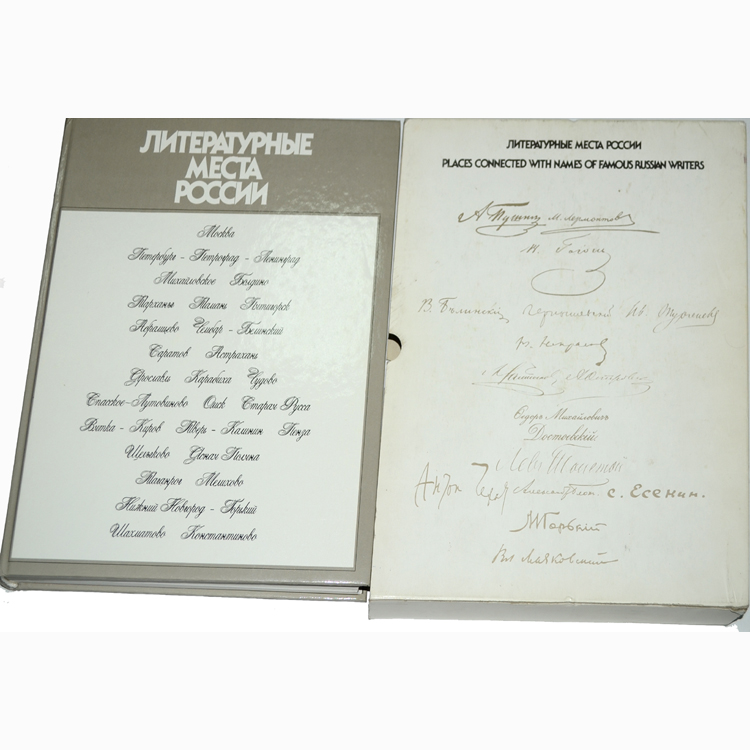 ЛИТЕРАТУРНЫЕ
МЕСТА
РОССИИ
Москва
Петербург - Петроград - Ленинград
Михайловское Болдино
Тарханы Тамань Пятигорск
Абрамцево Чембар - Белинский
Саратов Астрахань
Ярославль Карабиха Чудово
Спасское-Лутовиново Омск Старая Русса
Вятка - Киров Тверь - Калинин Пенза
Щелыково Ясная Поляна
Таганрог Мелихово
Нижний Новгород - Горький
Шахматово Константиново
ЛИТЕРАТУРНЫЕ МЕСТА РОССИИ
PLACES CONNECTED WITH NAMES OF FAMOUS RUSSIAN WRITERS
А Пушкин М. Лермонтов
Н. Гоголь
В. Белинский Чернышевский Ив. Тургенев
Н. Некрасов
Федор Михайлович
Достоевский
Лев Толстой
Антон Чехов С. Есенин.
М Горький
Вл Маяковский